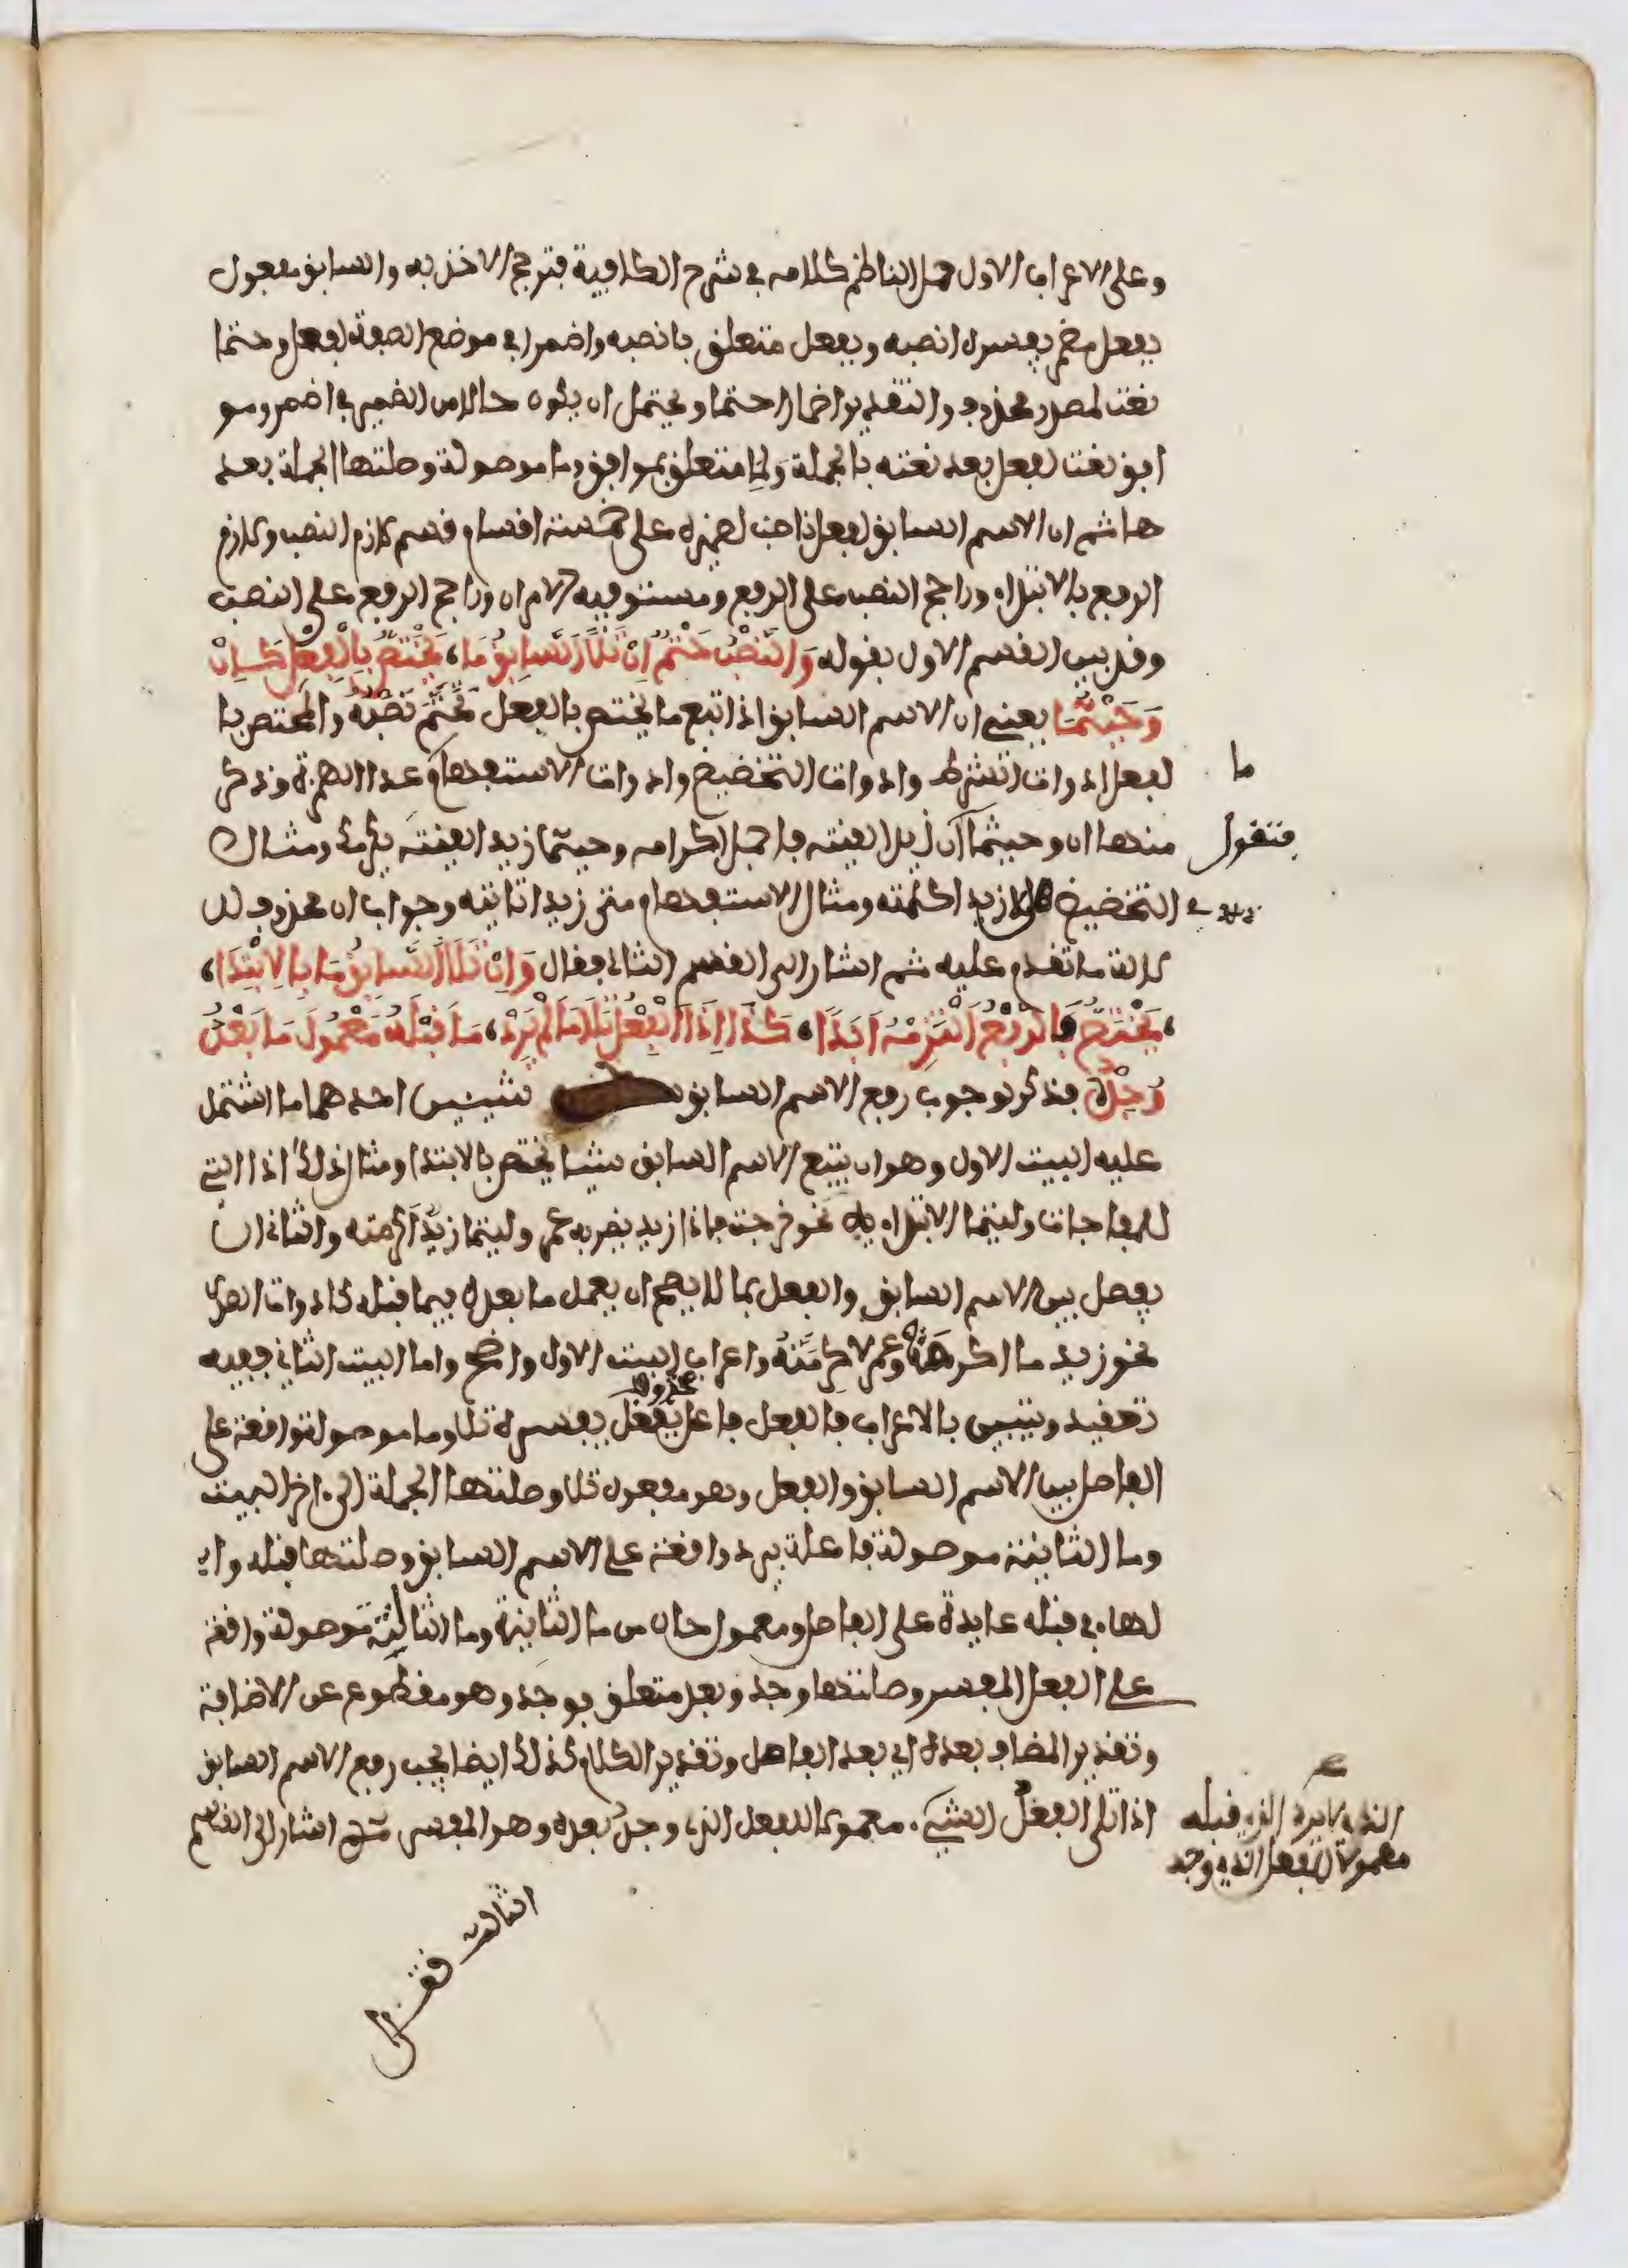 وعلى الاعراب الاول حمل الناظم كلامه في شرح الكافية فترجح الاخذ به والسابق مفعول
بفعل مضمر يفسره انصبه وبفعل متعلق بانصبه واضمرا في موضع الصفة لفعل وحتما
نعت لمصدر محذوف والتقدير اضمارا حتما ويحتمل ان يكون حالا من الضمير في اضمر ومو
افق نعت لفعل بعد نعته بالجملة ولما متعلق بموافق وما موصولة وصلتها الجملة بعد
ها ثم ان الاسم السابق لفعل ناصب لضميره على خمسة اقسام قسم لازم النصب ولازم
الرفع بالابتداء وراجح النصب على الرفع ومستو فيه الامران وراجح الرفع على النصب
وقد بين القسم الاول بقوله وَالنَّصْبُ حَتْمٌ اِنْ تَلَا السَّابِقُ مَا، يَخْتَصُّ بِالْفِعْلِ كَاِنْ
وَحَيْثُمَا يعني ان الاسم السابق اذا تبع ما يختص بالفعل تحتم نصبه والمختص با
لفعل ادوات الشرط وادوات التحضيض وادوات الاستفهام ما عدا الهمزة وذكر
منها ان وحيثما فتقول ان زيدا لقيته فاحمل اكرامه وحيثما زيدا لقيته يكرمك ومثال
التحضيض هلا زيدا كلمته ومثال الاستفهام متى زيدا تاتيه وجواب ان محذوف لد
لالة ما تقدم عليه ثم اشار الى القسم الثاني فقال وَاِنْ تَلَا السَّابِقُ مَا بِالِابْتِدَا،
،يَخْتَصُّ فَالرَّفْعُ الْتَزِمْهُ اَبَدَا، كَذَا اِذَا الْفِعْلُ تَلَا مَا لَمْ يَرِدْ، مَا قَبْلَهُ مَعْمُولَ مَا بَعْدُ
وُجِدْ فذكر لوجوب رفع الاسم السابق شيئين احدهما ما اشتمل
عليه البيت الاول وهو ان يتبع الاسم السابق شيئا يختص بالابتدا ومثال ذلك اذا التي
للمفاجات وليتما الابتداء نحو خرجت فاذا زيد يضربه عمر وليتما زيد اكرمته والثاني ان
يفصل بين الاسم السابق والفعل بما لا يصح ان يعمل ما بعده فيما قبله كادوات الصدر
نحو زيد ما اكرمته وعمر لاكرمنه واعراب البيت الاول واضح واما البيت الثاني ففيه
تعقيد ويتبين بالاعراب فالفعل فاعل بفعل محذوف يفسره تلا وما موصولة واقعة على
الفاصل بين الاسم السابق والفعل وهو مفعول تلا وصلتها الجملة الى اخر البيت
وما الثانية موصولة فاعلة بيرد واقعة على الاسم السابق وصلتها قبله وا
لهاء في قبله عايدة على الفاصل ومعمول حال من ما الثانية وما الثالثة موصولة واقعة
على الفعل المفسر وصلتها وجد وبعد متعلق بوجد وهو مقطوع عن الاضافة
وتقدير المضاف بعده اي بعد الفاصل وتقدير الكلام كذلك ايضا يجب رفع الاسم السابق
اذا تلى الفعل الشيء الذي لا يرد الذي قبله معمولا للفعل الذي وجد بعده وهو المفسر ثم اشار الى القسم
معمولا للفعل الذي وجد
الثالث فقال